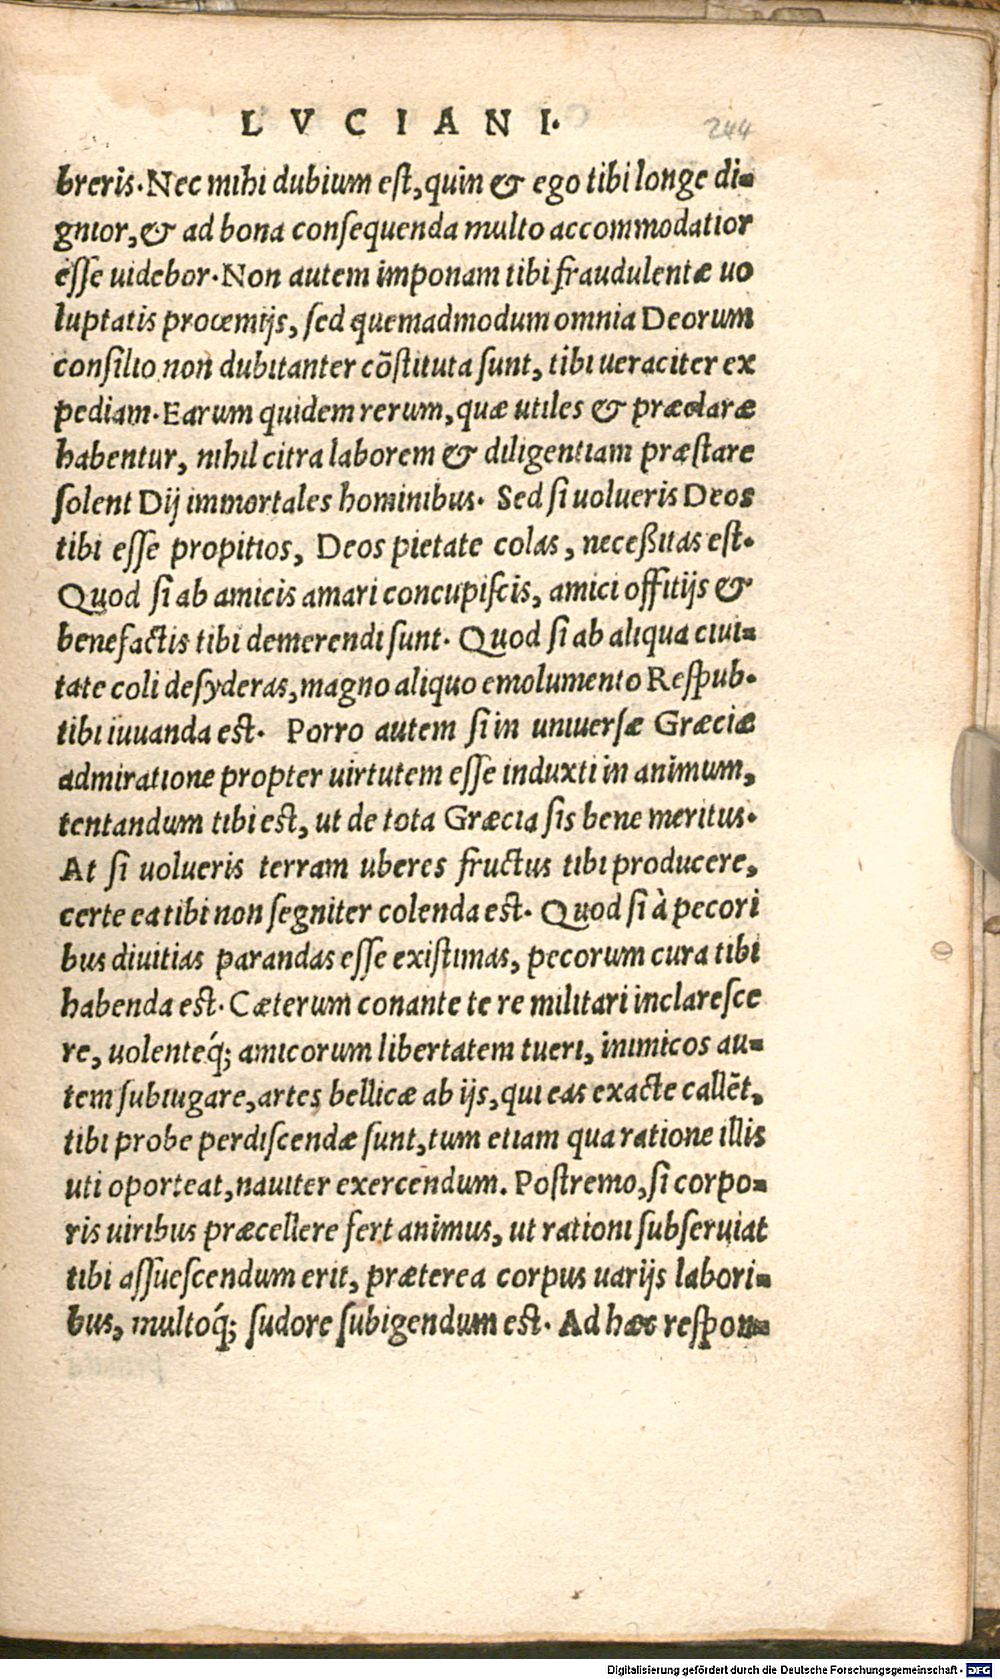 LVCIANI.
244
breris. Nec mihi dubium est, quin & ego tibi longe di-
gnior, & ad bona consequenda multo accommodatior
esse uidebor. Non autem imponam tibi fraudulentæ uo
luptatis procemijs, sed quemadmodum omnia Deorum
consilio non dubitanter cõstituta sunt, tibi ueraciter ex
pediam. Earum quidem rerum, quæ utiles & præclaræ
habentur, nihil citra laborem & diligentiam præstare
solent Dij immortales hominibus. Sed si uolueris Deos
tibi esse propitios, Deos pietate colas, necessitas est.
Quod si ab amicis amari concupiscis, amici offitijs &
benefactis tibi demerendi sunt. Quod si ab aliqua ciui-
tate coli desyderas, magno aliquo emolumento Respub.
tibi iuuanda est. Porro autem si in uniuersæ Græciæ
admiratione propter uirtutem esse induxti in animum,
tentandum tibi est, ut de tota Græcia sis bene meritus.
At si uolueris terram uberes fructus tibi producere,
certe ea tibi non segniter colenda est. Quod si à pecori
bus diuitias parandas esse existimas, pecorum cura tibi
habenda est. Cæterum conante te re militari inclaresce
re, uolenteq́; amicorum libertatem tueri, inimicos au-
tem subiugare, artes bellicæ ab ijs, qui eas exacte callẽt,
tibi probe perdiscendæ sunt, tum etiam qua ratione illis
uti oporteat, nauiter exercendum. Postremo, si corpo-
ris uiribus præcellere fert animus, ut rationi subseruiat
tibi assuescendum erit, præterea corpus uarijs labori-
bus, multoq́; sudore subigendum est. Ad hæc respon-
Digitalisierung gefördert durch die Deutsche Forschungsgemeinschaft - DFG